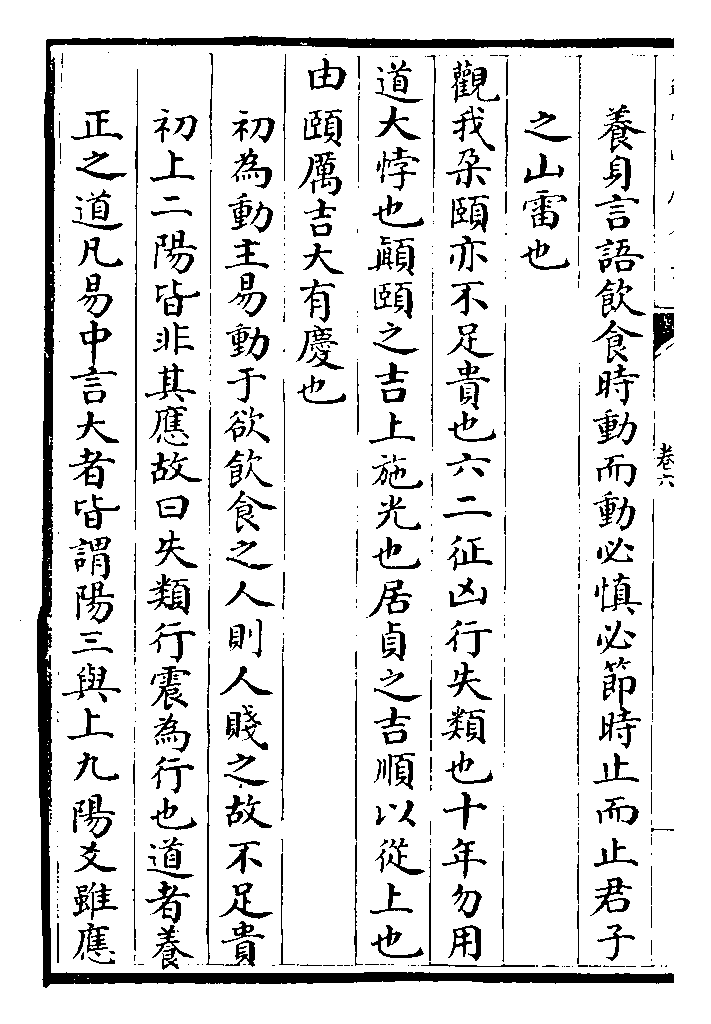 養身言語飲食時動而動必慎必節時止而止君子
之山雷也
觀我朶頤亦不足貴也六二征凶行失類也十年勿用
道大悖也顚頤之吉上施光也居貞之吉順以從上也
由頤厲吉大有慶也
初為動主易動于欲飲食之人則人賤之故不足貴
初上二陽皆非其應故曰失類行震為行也道者養
正之道凡易中言大者皆謂陽三與上九陽爻雖應
卷六